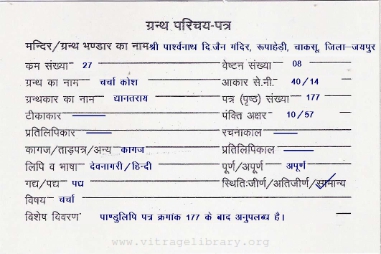 ग्रन्थ परिचय-पत्र
मन्दिर/ग्रन्थ भण्डार का नाम श्री पार्श्वनाथ दि.जैन मंदिर, रूपाहेड़ी, चाकसू, जिला-जयपुर
क्रम संख्या - 27 वेष्टन संख्या 08
ग्रन्थ का नाम - चर्चा कोश आकार से.मी. 40/14
ग्रन्थकार का नाम - द्यानतराय पत्र (पृष्ठ) संख्या - 177
टीकाकार — पंक्ति अक्षर - 10/57
प्रतिलिपिकार — रचनाकाल —
कागज/ताड़पत्र/अन्य - कागज प्रतिलिपिकाल —
लिपि व भाषा - देवनागरी/हिन्दी पूर्ण/अपूर्ण अपूर्ण
गद्य/पद्य - पद्य स्थिति:जीर्ण/अतिजीर्ण/सामान्य
विषय - चर्चा
विशेष विवरण पाण्डुलिपि पत्र क्रमांक 177 के बाद अनुपलब्ध है। —
www.vitragelibrary.org